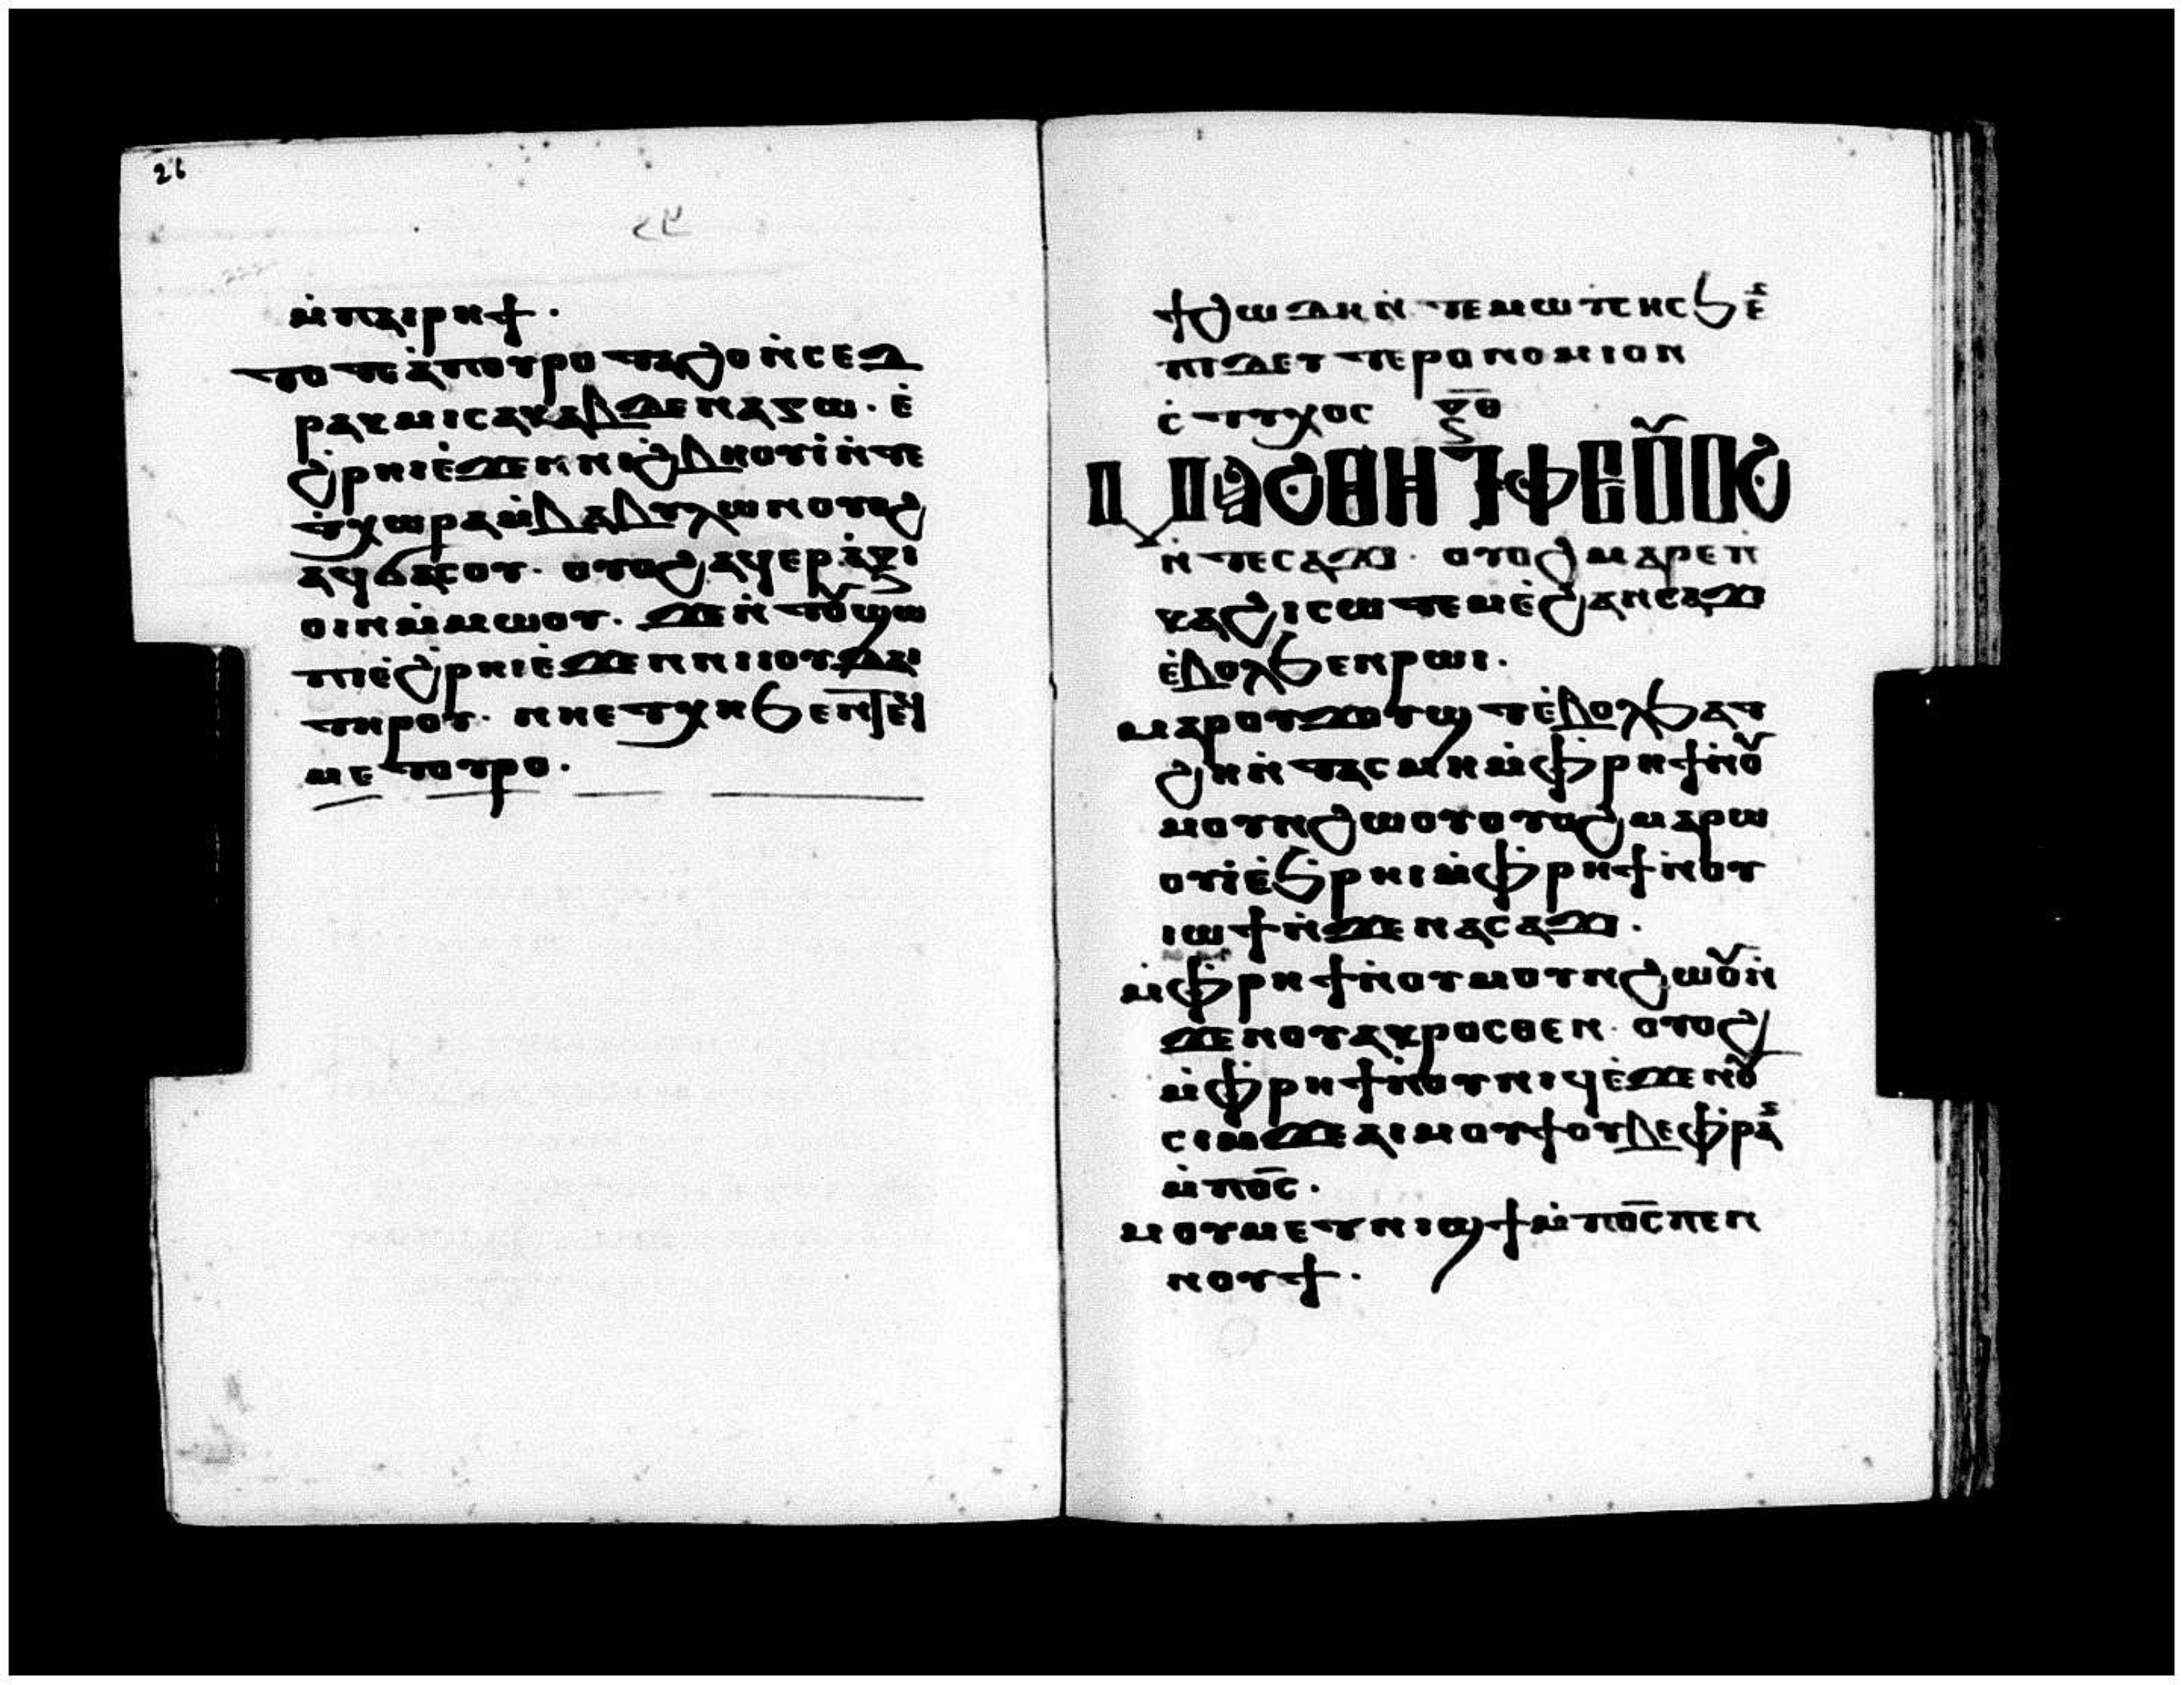 26
ⲙ̇ⲡⲁⲓⲣⲏϯ.
ⲧⲟⲧⲉⲁ̇ⲡⲟⲩⲣⲟⲧⲁϩⲟⲛ̇ⲥⲉⲇ
ⲣⲁⲕⲙⲓⲥⲁⲕⲁⲃϫⲉⲛⲁⲍⲱ. ⲉ̇
ϩⲣⲏⲓⲉ̇ϫⲉⲛⲛⲓϩⲃⲏⲟⲩⲓ̇ⲛ̇ⲧⲉ
ⲧ̇ⲭⲱⲣⲁⲙ̇ⲃⲁⲃⲩⲗⲱⲛⲟⲩⲟϩ
ⲁϥϭⲁⲥⲟⲩ. ⲟⲩⲟϩⲁϥⲉⲣⲁ̇ⲝⲓ
ⲟⲓⲛⲙ̇ⲙⲱⲟⲩ. ϫⲉⲛ̇ⲧⲟⲩϣⲱ
ⲡⲓⲉ̇ϩⲣⲏⲓⲉ̇ϫⲉⲛⲛⲓⲓⲟⲩⲇⲁⲓ
ⲧⲏⲣⲟⲩ. ⲛⲏⲉⲧⲭⲏϧⲉⲛⲧⲉϥ
ⲙⲉⲧⲟⲩⲣⲟ.
ϯϩⲱⲇⲏⲛ̇ⲧⲉⲙⲱⲩ̇ⲥⲏⲥϧⲉ̇ⲛ
ⲡⲓⲇⲉⲩⲧⲉⲣⲟⲛⲟⲙⲓⲟⲛ
ⲥ̇ⲧⲩⲭⲟⲥ ⲝ̅ⲑ̅
ⲙⲁϩⲑⲏⲓ̇ⲧⲫⲉⲟⲩⲟϩ
ⲛ̇ⲧⲉⲥⲁϫⲓ. ⲟⲩⲟϩⲙⲁⲣⲉⲡ̇
ⲕⲁϩⲓⲥⲱⲧⲉⲙⲉ̇ϩⲁⲛⲥⲁϫⲓ
ⲉ̇ⲃⲟⲗϧⲉⲛⲣⲱⲓ.
ⲙⲁⲣⲟⲩϫⲟⲩϣⲧⲉ̇ⲃⲟⲗϧⲁⲧ
ϩⲏⲛ̇ⲧⲁⲥⲙⲏⲙ̇ⲫ̇ⲣⲏϯⲛ̇ⲟⲩ
ⲙⲟⲩⲛϩⲱⲟⲩⲟⲩⲟϩⲙⲁⲣⲟⲩ
ⲟⲩⲓ̇ⲉ̇ϧⲣⲏⲓⲙ̇ⲫ̇ⲣⲏϯⲛ̇ⲟⲩ
ⲓⲱϯⲛ̇ϫⲉⲛⲁⲥⲁϫⲓ.
ⲙ̇ⲫ̇ⲣⲏϯⲛ̇ⲟⲩⲙⲟⲩⲛϩⲱⲟⲩⲛ̇
ϫⲉⲛⲟⲩⲁⲕⲣⲟⲥⲑⲉⲛ. ⲟⲩⲟϩ
ⲙ̇ⲫ̇ⲣⲏϯⲛ̇ⲟⲩⲛⲓϥⲉ̇ϫⲉⲛⲟⲩ
ⲥⲓⲙϫⲉⲁⲓⲙⲟⲩϯⲟⲩⲃⲉⲫ̇ⲣⲁⲛ
ⲙ̇ⲡⲟ̅ⲥ̅.
ⲙⲟⲩⲙⲉⲧⲛⲓϣϯⲙ̇ⲡⲟ̅ⲥ̅ⲡⲉⲛ
ⲛⲟⲩϯ.